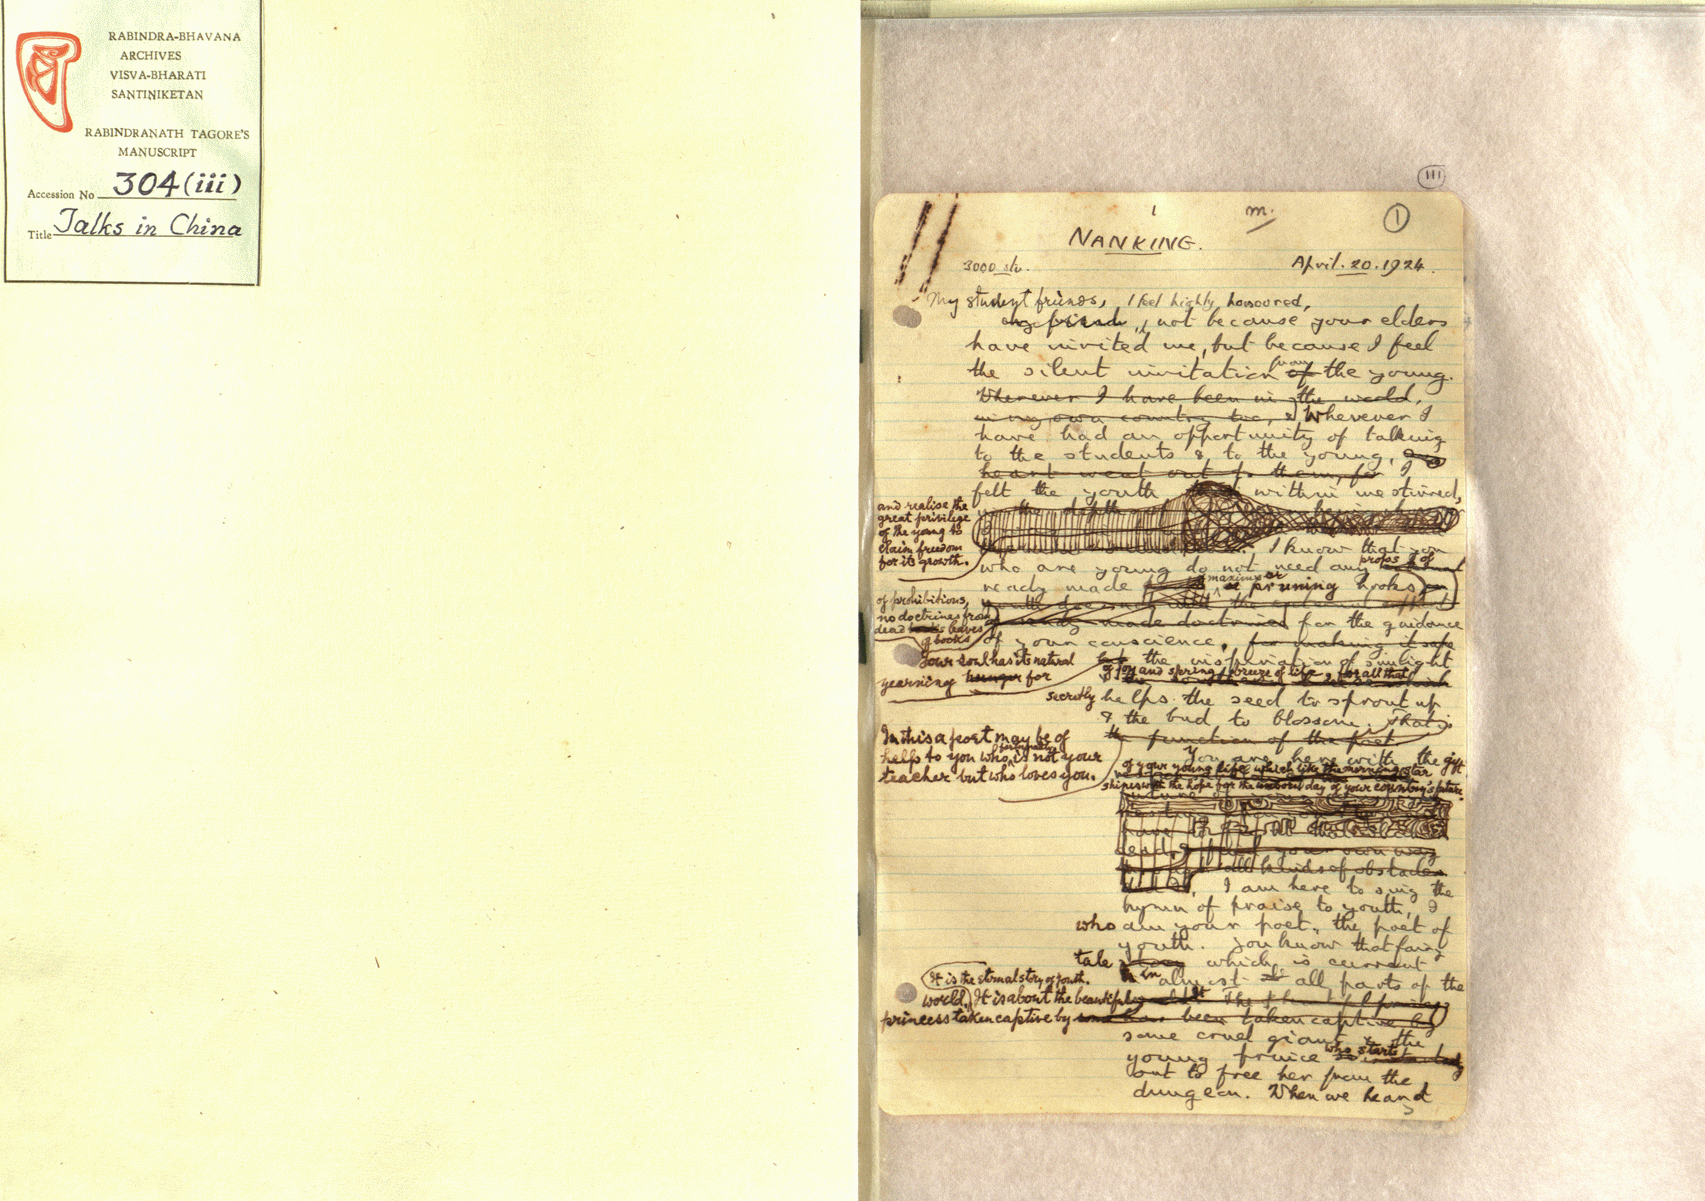 RABINDRA-BHAVANA
ARCHIVES
VISVA-BHARATI
SANTINIKETAN
RABINDRANATH TAGORE'S
MANUSCRIPT
Accession No 304(iii)
Title Talks in China
III
1 m. 1
NANKING.
3000 stu. April. 20. 1924.
My student friends, I feel highly honoured,
my friends, not because your elders
have invited me, but because I feel
the silent invitation of from the young.
Wherever I have been in the world,
in my own country too, & Wherever I
have had an opportunity of talking
to the students & to the young,
heart went out to them, for I
felt the youth within me stirred,
and realise the
great privilege
of the young to
claim freedom
for its growth.
the depth
I know that you
who are young do not need any props of
ready made maxims or pruning hooks
of prohibitions,
no doctrines from
dead leaves
of books
youth does not the external
ready made doctrines for the guidance
of your conscience, for making it safe
Your soul has its natural
yearning hunger for
but the inspiration of sunlight
of joy and spring breeze of life, for all that
secretly helps the seed to sprout up
& the bud to blossom. That is
the function of the poet
In this a poet may be of
help to you who fortunately is not your
teacher but who loves you.
You are here with the gift
of your young life which like the morning star
shines with the hope for the unborn day of your country's future.
dead, your own way
all kinds of obstacles
I am here to sing the
hymn of praise to youth, I
who am your poet, the poet of
youth. You know that fairy
tale story which is current
in almost all parts of the
It is the eternal story of youth.
world. It is about the beautiful
The beautiful princess
princess taken captive by some has been taken captive by
some cruel giant & the
young prince who starts
out to free her from the
dungeon. When we heard